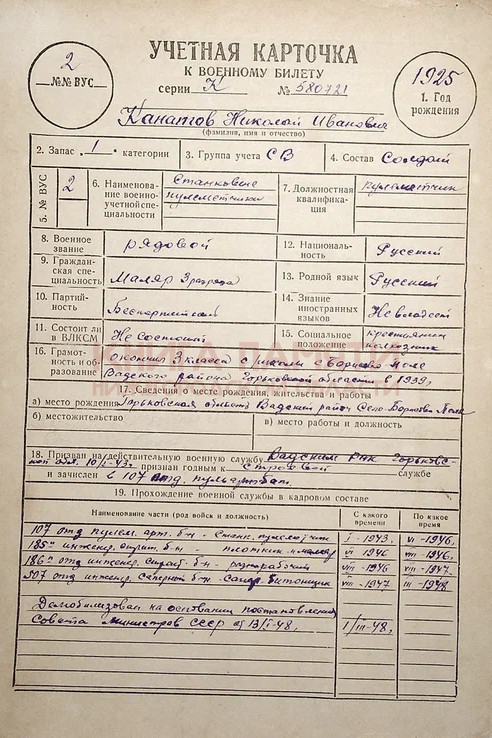 2
№№ ВУС
УЧЕТНАЯ КАРТОЧКА
К ВОЕННОМУ БИЛЕТУ
серии К № 580721
1925
1. Год
рождения
Канатов Николай Иванович
(фамилия, имя и отчество)
2. Запас 1 категории
3. Группа учета СВ
4. Состав Солдат
5. № ВУС
2
6. Наименова-
ние военно-
учетной спе-
циальности
Станковые
пулеметчики
7. Должностная
квалифика-
ция
пулеметчик
8. Военное
звание
рядовой
12. Националь-
ность
Русский
9. Граждан-
ская спе-
циальность
Маляр 3 разряда
13. Родной язык
Русский
10. Партий-
ность
Беспартийный
14. Знание
иностранных
языков
Не владеет
11. Состоит ли
в ВЛКСМ
Не состоит
15. Социальное
положение
крестьянин
колхозник
16. Грамот-
ность и об-
разование
окончил 3 класса с/школы с Борково Поле
Вадского района Горьковской области в 1939 г.
17. Сведения о месте рождения, жительства и работы
а) место рождения Горьковская область Вадский район Село Борково Поле
б) местожительство
в) место работы и должность
18. Призван на действительную военную службу Вадским РВК Горьковс-
кой обл. 10/I-43 г. признан годным к строевой службе
и зачислен в 107 отд. пульартбат.
19. Прохождение военной службы в кадровом составе
Наименование части (род войск и должность)
С какого
времени
По какое
время
107 отд пулем. арт. б-н - станк. пулеметчик I-1943. VI-1946.
185 инженер. строит. б-н - плотник маляр VI 1946 VIII-1946.
186 отд инженер. строит. б-н - разнорабочий VIII-1946 VIII-1947.
507 отд инженер. саперный б-н - сапер бетонщик VIII-1947 III-1948
Демобилизован на основании постановления
Совета министров СССР от 13/I-48. I/III-48.